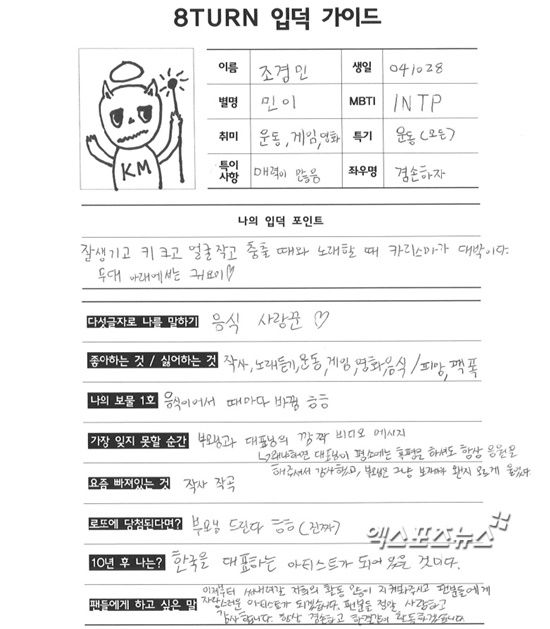 8TURN 입덕 가이드
KM
이름 조경민 생일 041028
별명 민이 MBTI INTP
취미 운동, 게임, 영화 특기 운동(모든)
특이사항 매력이 많음 좌우명 겸손하자
나의 입덕 포인트
잘생기고 키 크고 얼굴 작고 춤출 때와 노래할 때 카리스마가 대박이다.
무대 아래에서는 귀요미♡
다섯글자로 나를 말하기 음식 사랑꾼 ♡
좋아하는 것 / 싫어하는 것 작사, 노래듣기, 운동, 게임, 영화, 음식 / 피망, 팩폭
나의 보물 1호 음식이어서 때마다 바뀜 ㅎㅎ
가장 잊지 못할 순간 부모님과 대표님의 깜짝 비디오 메시지
↳왜냐하면 대표님이 평소에는 혹평을 하셔도 항상 응원을
해주셔서 감사했고, 부모님은 그냥 보자마자 왠지 모르게 울었다
요즘 빠져있는 것 작사 작곡
로또에 당첨된다면? 부모님 드린다 ㅎㅎ (진짜)
엑스포츠뉴스
10년 후 나는? 한국을 대표하는 아티스트가 되어 있을 것이다.
팬들에게 하고 싶은 말 이제부터 써내려갈 저희의 활동 많이 지켜봐주시고 팬분들에게
자랑스러운 아티스트가 되겠습니다. 팬분들 정말 사랑하고
감사합니다. 항상 겸손하고 한결같이 활동하겠습니다